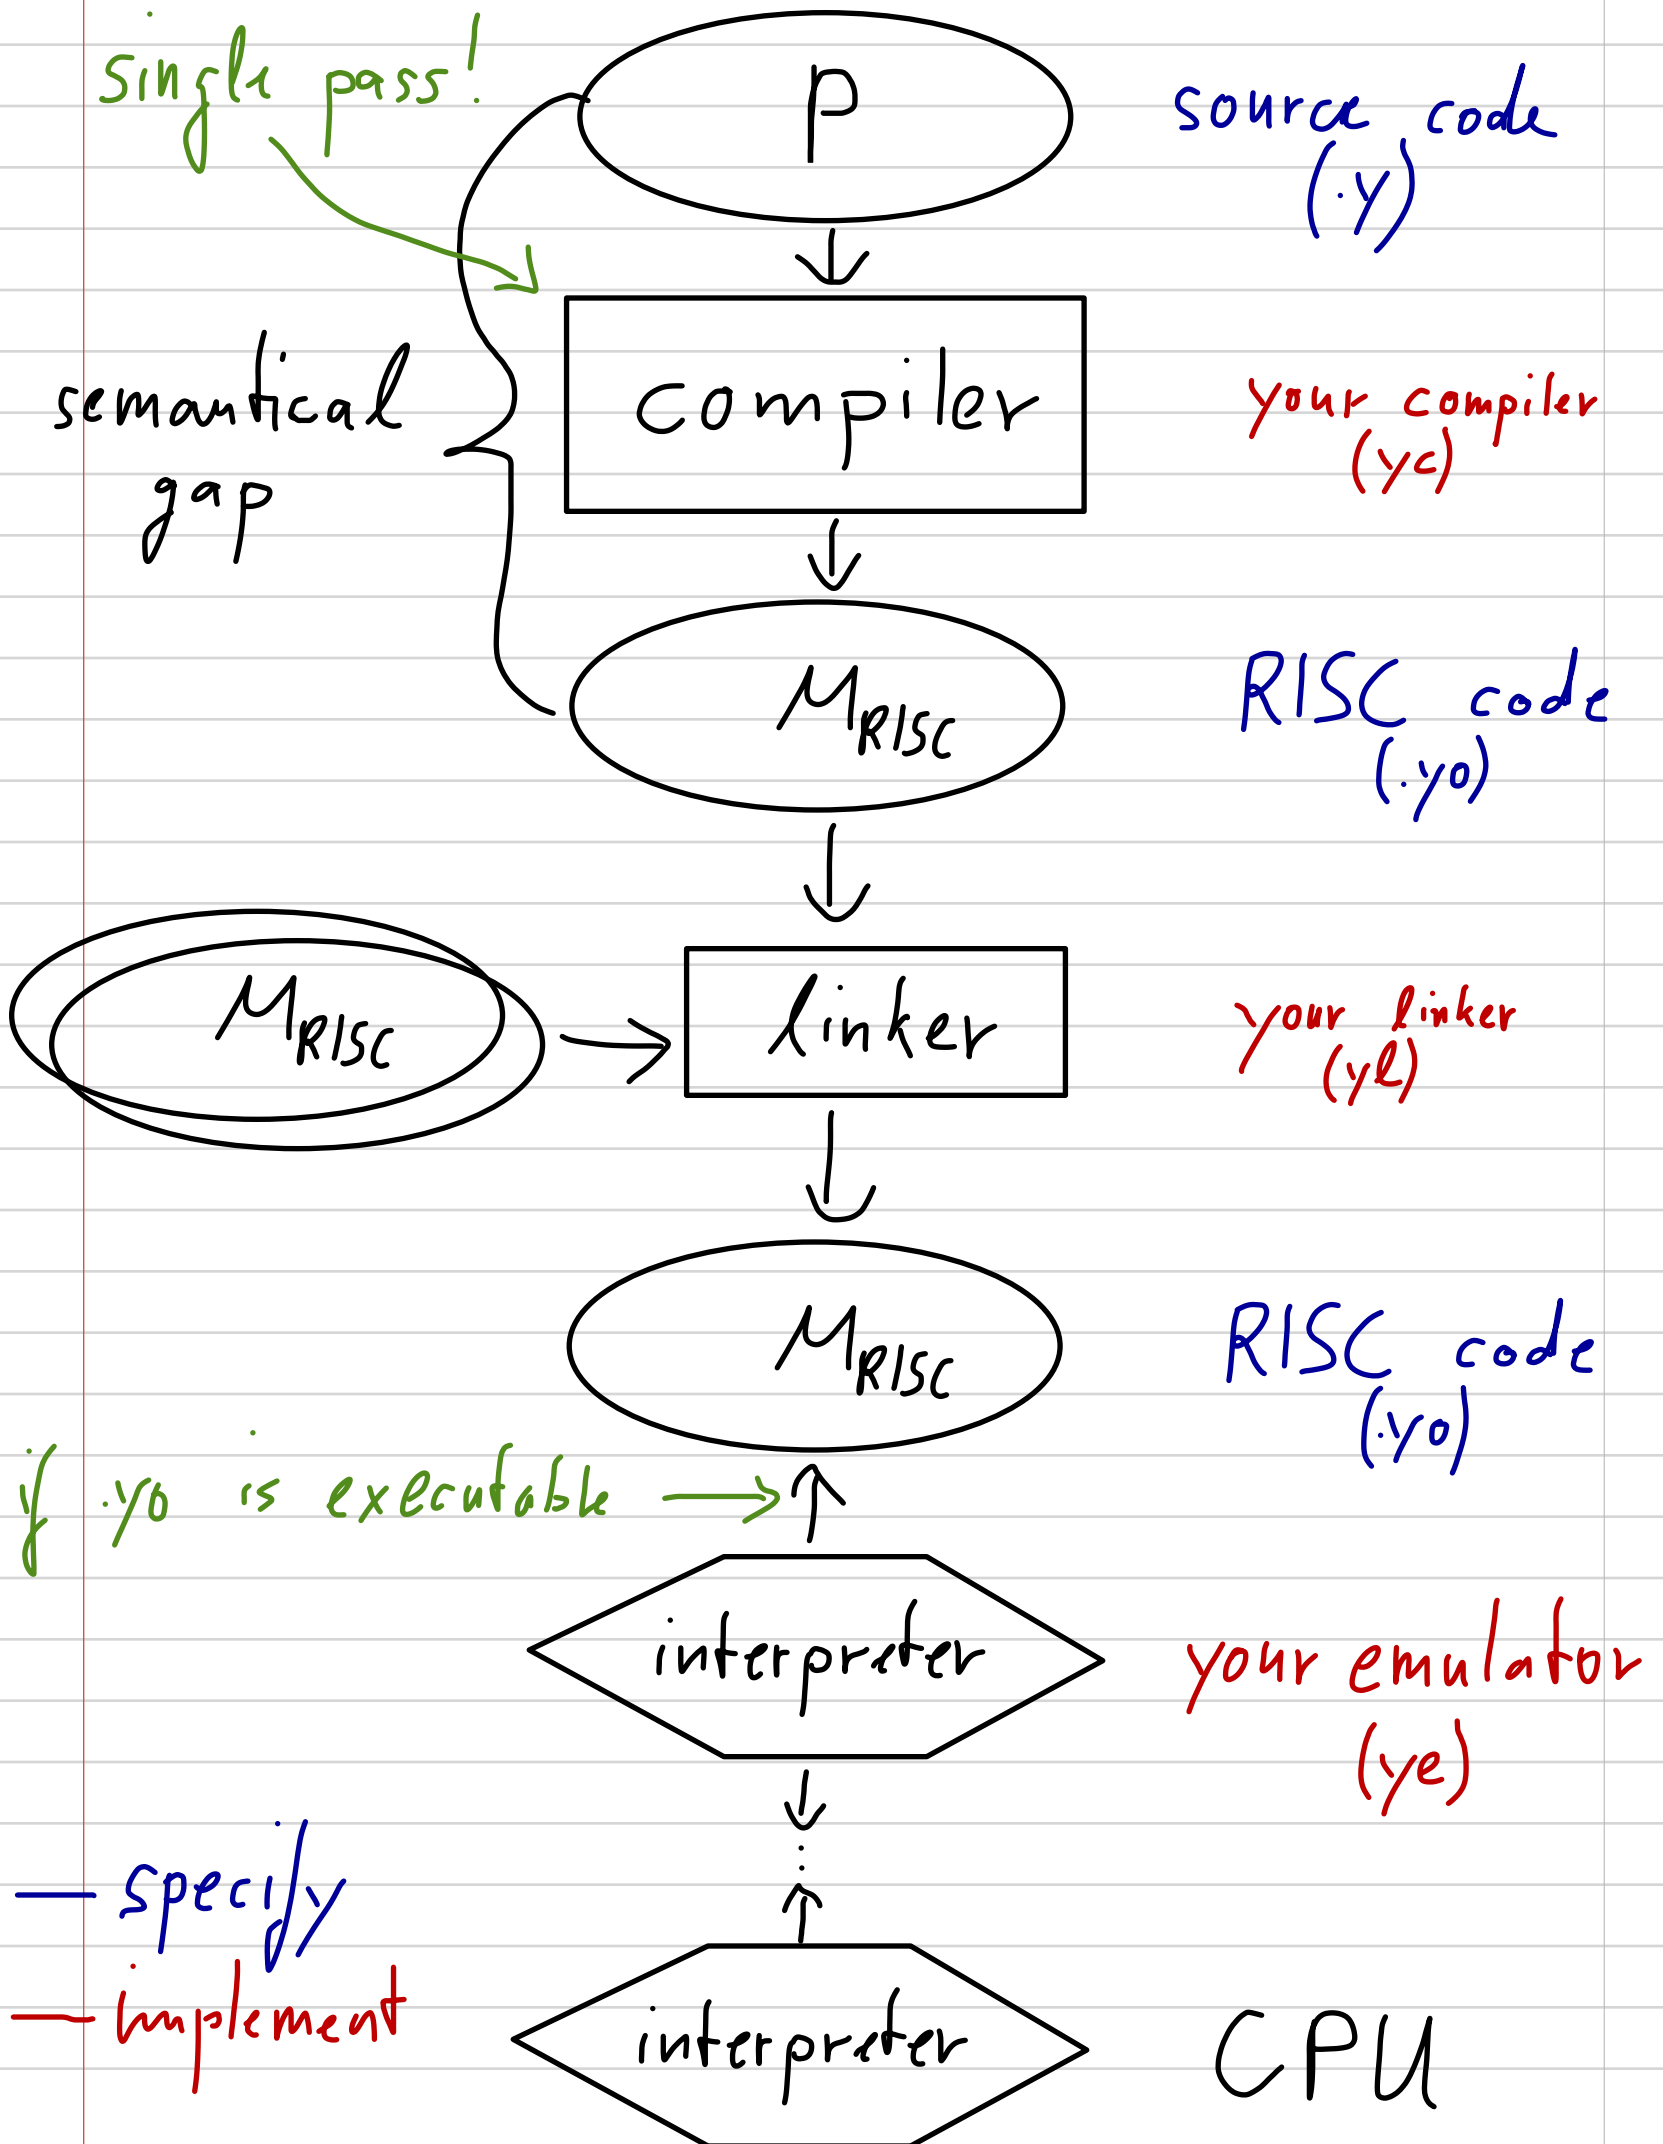 single pass!
P
source code
(.y)
compiler
semantical
gap
your compiler
(yc)
M RISC
RISC code
(.yo)
M RISC
linker
your linker
(yl)
M RISC
RISC code
(.yo)
if .yo is executable
interpreter
your emulator
(ye)
:
— specify
— implement
interpreter
CPU